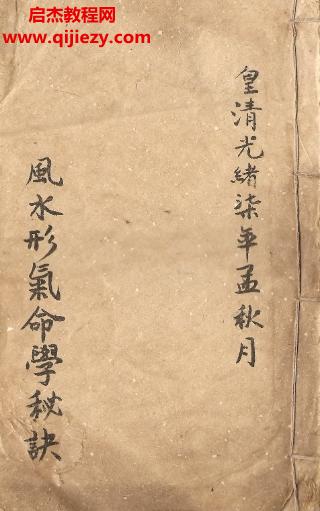 启杰教程网
www.qijiezy.com
皇清光緒柒年孟秋月
風水形氣命學秘訣